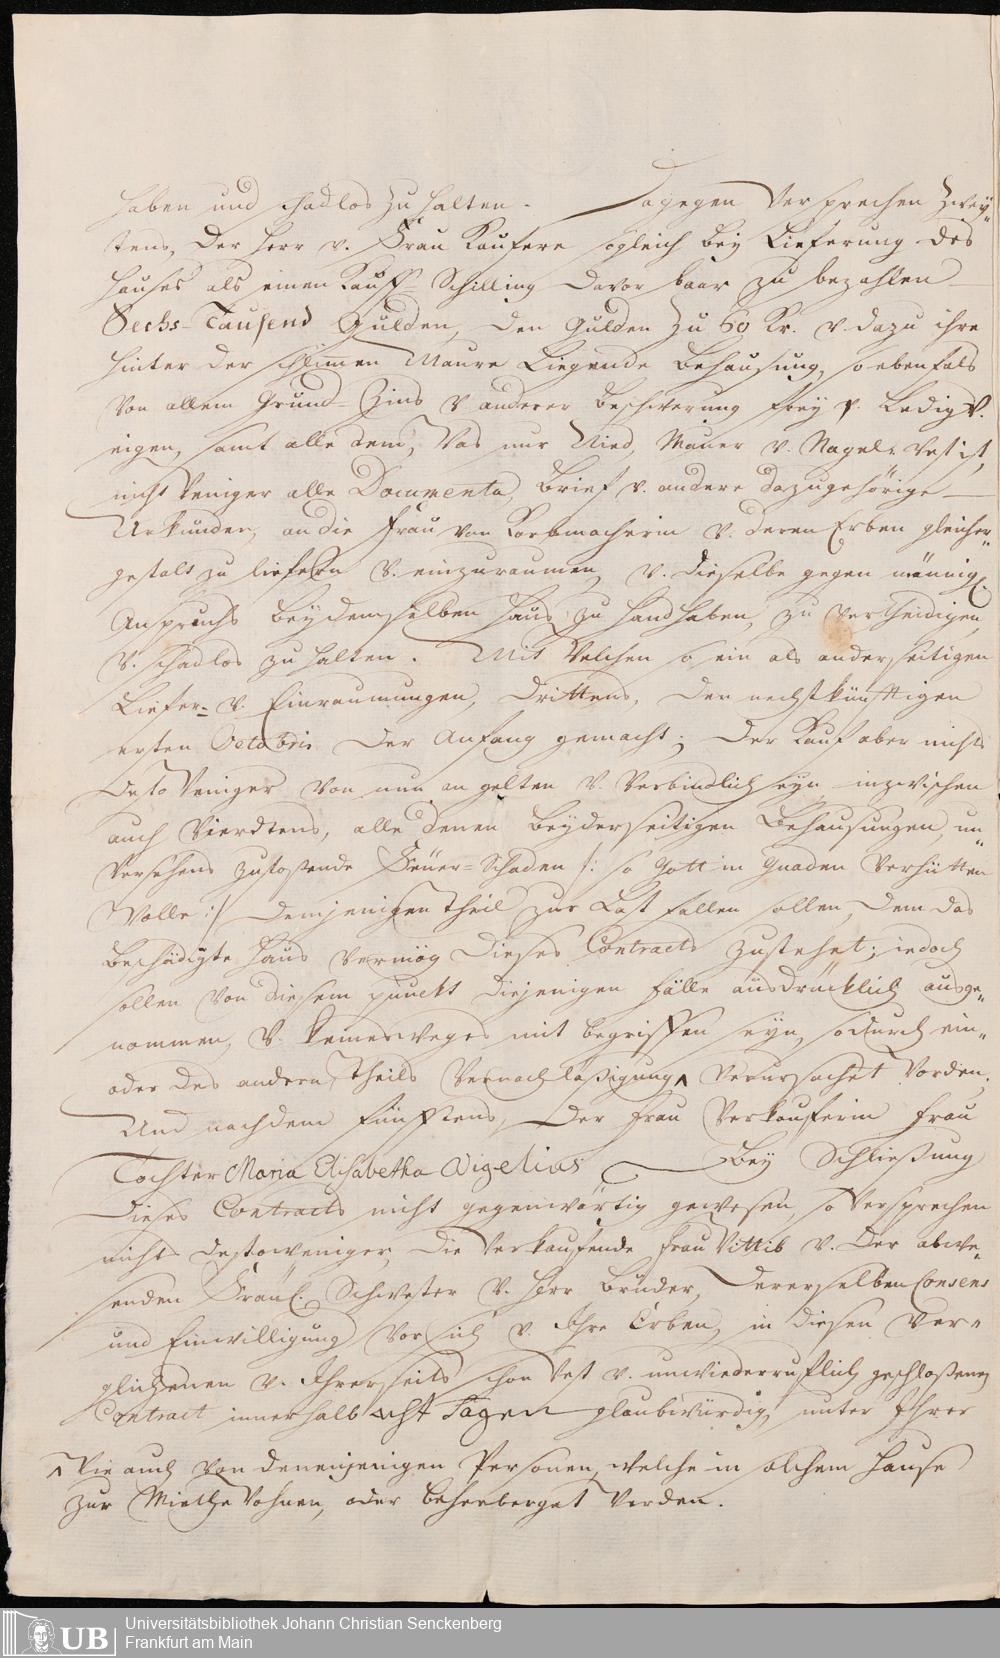 haben und schadlos zu halten. Dagegen Versprechen Zwey-
tens, der Herr v. Frau Kaufere sogleich bey Lieferung des
Hauses als einen Kauff-Schilling davor baar zu bezahlen
Sechs-Tausend Gulden, den Gulden zu 60 Kr. v. dazu ihre
hinter der schlimen Maure Liegende Behausung, so ebenfals
von allem Grund-Zins v anderer Beschwerung frey v. Ledig v.
eigen, samt alle dem, Was nur Nied, Mauer v. Nagel vest ist,
nicht Weniger alle Documenta, Brief v. andere dazugehörige
Urkunden, an die Frau von Korbmacherin v. deren Erben gleicher-
gestalt zu liefern v. einzuraumen, v. dieselbe gegen männigl.
Anspruchs bey demselben Haus zu Handhaben, zu vertheidigen,
v. schadlos zu halten. Mit Welchen so ein als anderseitigen
Liefer- v. Einraumungen, drittens, den nechstkünfftigen
ersten Octobris der Anfang gemacht; der Kauf aber nichts
desto Weniger von nun an gelten v. Verbindlich seyn, inzwischen
auch Vierdtens, alle denen beyderseitigen Behausungen, un-
versehens zustoßende Feuer-Schaden /: so Gott in Gnaden Verhütten
Wolle :/ demjenigen Theil zur Last fallen sollen, dem das
beschädigte Haus vermög dieses Contracts zustehet; iedoch
sollen von diesem punckt diejenigen fälle ausdrücklich ausge-
nommen, v. keinesweges mit begriffen seyn, so durch ein-
oder des andern Theils Vernachlaßigung ^ Verursachet Worden.
Und nachdem fünfftens, der Frau Verkauferin Frau
Tochter Maria Elisabetha Wigelius bey Schließung
dieses Contracts nicht gegenwärtig gewesen, so Versprechen
nichts destoweniger die Verkaufende Frau Wittib v. der abwe-
senden Fräul. Schwester v. Herr Bruder, dererselben Consens
und Einwilligung vor sich v. Ihre Erben, in diesen ver-
glichenen v. Ihrerseits schon Vest v. unwiederrufflich geschloßenen
Contract innerhalb acht Tagen glaubwürdig unter Ihrer
^ Wie auch von denenjenigen Personen, welche in solchem Hause
zur Miethe Wohnen, oder beherberget Werden.
UB
Universitätsbibliothek Johann Christian Senckenberg
Frankfurt am Main